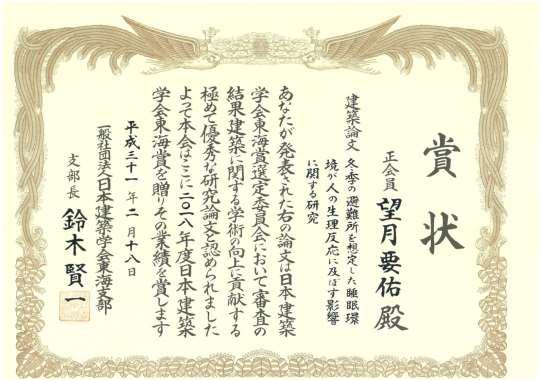 賞状
正会員 望月要佑殿
建築論文 冬季の避難所を想定した睡眠環
境が人の生理反応に及ぼす影響
に関する研究
あなたが発表された右の論文は日本建築
学会東海賞選定委員会において審査の
結果建築に関する学術の向上に貢献する
極めて優秀な研究論文と認められました
よって本会はここに二〇一八年度日本建築
学会東海賞を贈りその業績を賞します
平成三十一年二月十八日
一般社団法人日本建築学会東海支部
支部長 鈴木賢一